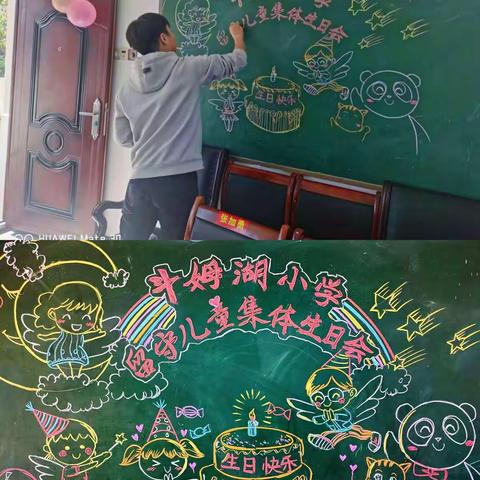 学
儿童集体生日会
生日快乐
HUAWEI Mate 30
斗姆湖小学
留守儿童集体生日会
生日快乐